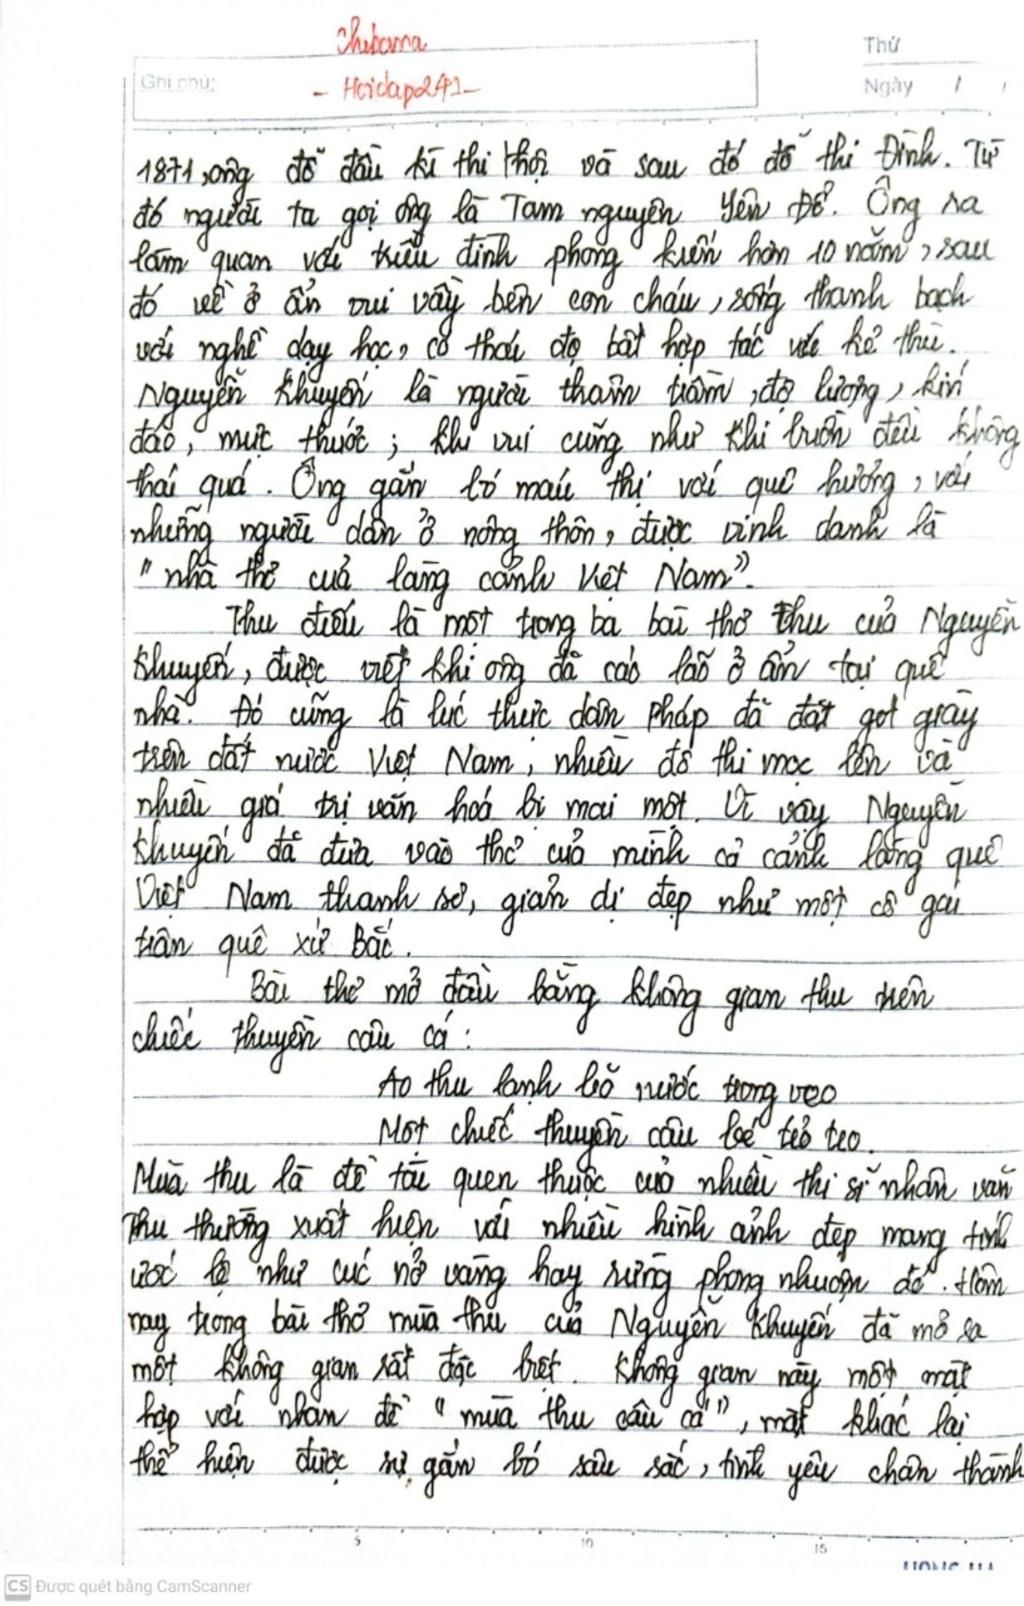 Chibama
Ghi chú:
- Hoidap247-
Thứ
Ngày / /
1871, ông đỗ đầu kì thi Hội và sau đó đỗ thi Đình. Từ
đó người ta gọi ông là Tam nguyên Yên Đổ. Ông ra
làm quan với triều đình phong kiến hơn 10 năm, sau
đó về ở ẩn vui vầy bên con cháu, sống thanh bạch
với nghề dạy học, có thái độ bất hợp tác với kẻ thù.
Nguyễn Khuyến là người thâm trầm, độ lượng, kín
đáo, mực thước; khi vui cũng như khi buồn đều không
thái quá. Ông gắn bó máu thịt với quê hương, với
những người dân ở nông thôn, được vinh danh là
"nhà thơ của làng cảnh Việt Nam".
Thu điếu là một trong ba bài thơ thu của Nguyễn
Khuyến, được viết khi ông đã cáo lão ở ẩn tại quê
nhà. Đó cũng là lúc thực dân Pháp đã đặt gót giày
trên đất nước Việt Nam, nhiều đô thị mọc lên và
nhiều giá trị văn hoá bị mai một. Vì vậy Nguyễn
Khuyến đã đưa vào thơ của mình cả cảnh làng quê
Việt Nam thanh sơ, giản dị đẹp như một cô gái
trân quê xứ Bắc.
Bài thơ mở đầu bằng không gian thu trên
chiếc thuyền câu cá:
Ao thu lạnh lẽo nước trong veo
Một chiếc thuyền câu bé tẻo teo.
Mùa thu là đề tài quen thuộc của nhiều thi sĩ nhân văn
Thu thường xuất hiện với nhiều hình ảnh đẹp mang tính
ước lệ như cúc nở vàng hay rừng phong nhuộm đỏ. Hôm
nay trong bài thơ mùa thu của Nguyễn Khuyến đã mở ra
một không gian rất đặc biệt. Không gian này một mặt
hợp với nhan đề "mùa thu câu cá", mặt khác lại
thể hiện được sự gắn bó sâu sắc, tình yêu chân thành
5 10 15
HONG HA
CS Được quét bằng CamScanner